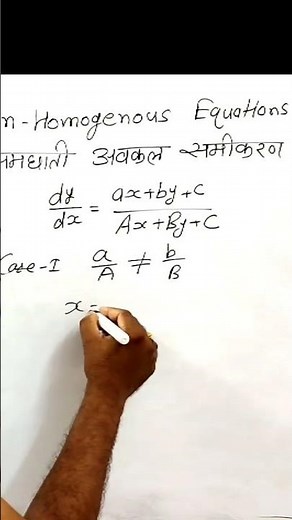 n-Homogenous Equations
समघाती अवकल समीकरण
dy/dx = ax+by+c/Ax+By+C
Case-I a/A ≠ b/B
x=